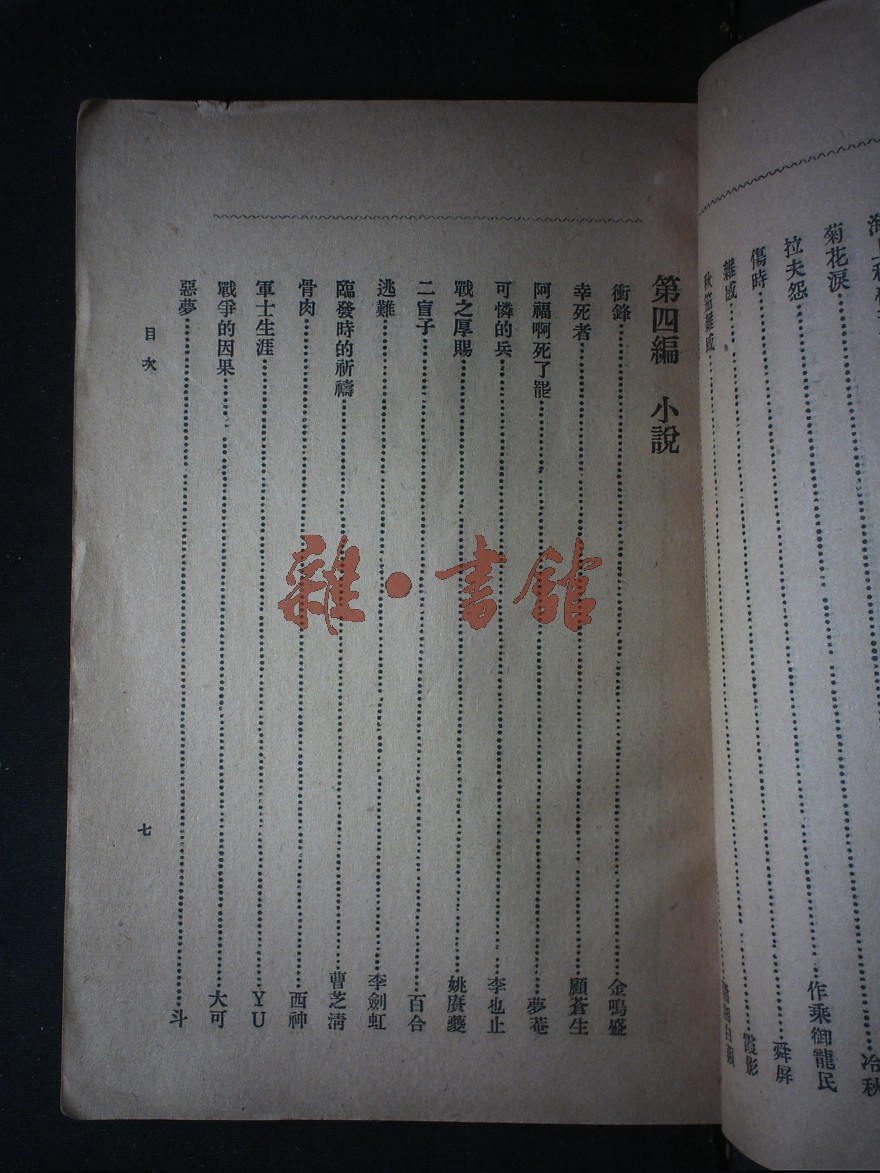 菊花淚……冷秋
拉夫怨……作乘御龍民
傷時……舜屏
雜感……霞影
秋節雜感
第四編　小說
衝鋒……金鳴盛
幸死者……顧蒼生
阿福啊死了罷……夢菴
可憐的兵……李也止
戰之厚賜……姚賡夔
二盲子……百合
逃難……李劍虹
臨發時的祈禱……曹芝清
骨肉……西神
軍士生涯……YU
戰爭的因果……大可
惡夢……斗
目次
七
雜·書館